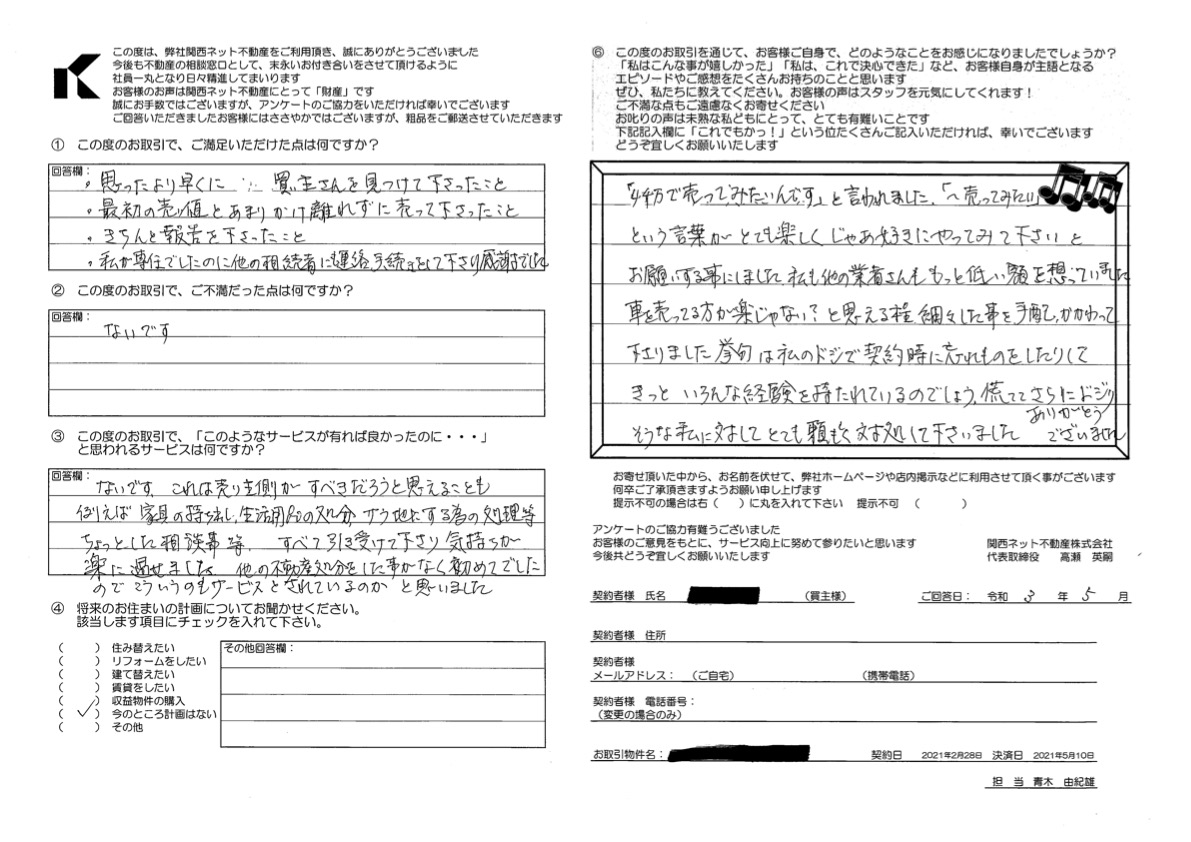 この度は、弊社関西ネット不動産をご利用頂き、誠にありがとうございました
今後も不動産の相談窓口として、末永いお付き合いをさせて頂けるように
社員一丸となり日々精進してまいります
お客様のお声は関西ネット不動産にとって「財産」です
誠にお手数ではございますが、アンケートのご協力をいただければ幸いでございます
ご回答いただきましたお客様にはささやかではございますが、粗品をご郵送させていただきます
① この度のお取引で、ご満足いただけた点は何ですか?
回答欄:
・思ったより早くに 買い主さんを見つけて下さったこと
・最初の売り値とあまりかけ離れずに売って下さったこと
・きちんと報告を下さったこと
・私が専任でしたのに他の相続者に連絡手続きをして下さり感謝でした
② この度のお取引で、ご不満だった点は何ですか?
回答欄:
ないです
③ この度のお取引で、「このようなサービスが有れば良かったのに・・・」
と思われるサービスは何ですか?
回答欄:
ないです、これは売り主側がすべきだろうと思えることも
例えば 家具の持ち出し、生活用品の処分 サラ地にする為の処理等
ちょっとした相談事等、すべて引き受けて下さり気持ちが
楽に過せました 他の不動産処分をした事がなく初めてでした
のでこういうのもサービスとされているのか と思いました
④ 将来のお住まいの計画についてお聞かせください。
該当します項目にチェックを入れて下さい。
( ) 住み替えたい
( ) リフォームをしたい
( ) 建て替えたい
( ) 賃貸をしたい
( ) 収益物件の購入
(✓) 今のところ計画はない
( ) その他
その他回答欄:
⑥ この度のお取引を通じて、お客様ご自身で、どのようなことをお感じになりましたでしょうか?
「私はこんな事が嬉しかった」「私は、これで決心できた」など、お客様自身が主語となる
エピソードやご感想をたくさんお持ちのことと思います
ぜひ、私たちに教えてください。お客様の声はスタッフを元気にしてくれます!
ご不満な点もご遠慮なくお寄せください
お叱りの声は未熟な私どもにとって、とても有難いことです
下記記入欄に「これでもかっ!」という位たくさんご記入いただければ、幸いでございます
どうぞ宜しくお願いいたします
「4千万で売ってみたいんです」と言われました、「〜売ってみたい」
という言葉がとても楽しくじゃあ好きにやってみて下さいと
お願いする事にしました 私も他の業者さんももっと低い額を想っていました
車を売ってる方が楽じゃない?と思える程 細々した事を手配し、かかわって
下さりました 挙句は私のドジで契約時に忘れものをしたりして
きっと いろんな経験を持たれているのでしょう、慌ててさらにドジり
そうな私に対してとても頼もしく対処して下さいました ありがとう
ございました
お寄せ頂いた中から、お名前を伏せて、弊社ホームページや店内掲示などに利用させて頂く事がございます
何卒ご了承頂きますようお願い申し上げます
提示不可の場合は右( )に丸を入れて下さい 提示不可 ( )
アンケートのご協力有難うございました
お客様のご意見をもとに、サービス向上に努めて参りたいと思います
今後共どうぞ宜しくお願いいたします
関西ネット不動産株式会社
代表取締役 高瀬 英嗣
契約者様 氏名 (買主様) ご回答日: 令和 3 年 5 月
契約者様 住所
契約者様
メールアドレス: (ご自宅) (携帯電話)
契約者様 電話番号:
(変更の場合のみ)
お取引物件名: 契約日 2021年2月28日 決済日 2021年5月10日
担 当 青木 由紀雄